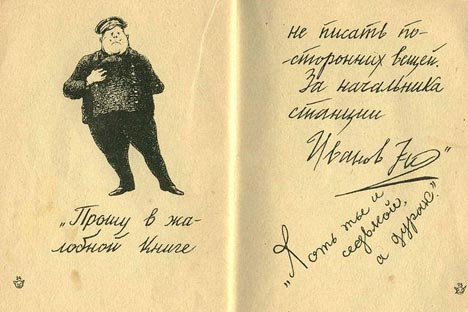 „Прошу в жа-
лобной книге
не писать по-
сторонних вещей.
За начальника
станции
Иванов 7й"
„Хоть ты и
седьмой,
а дурак."